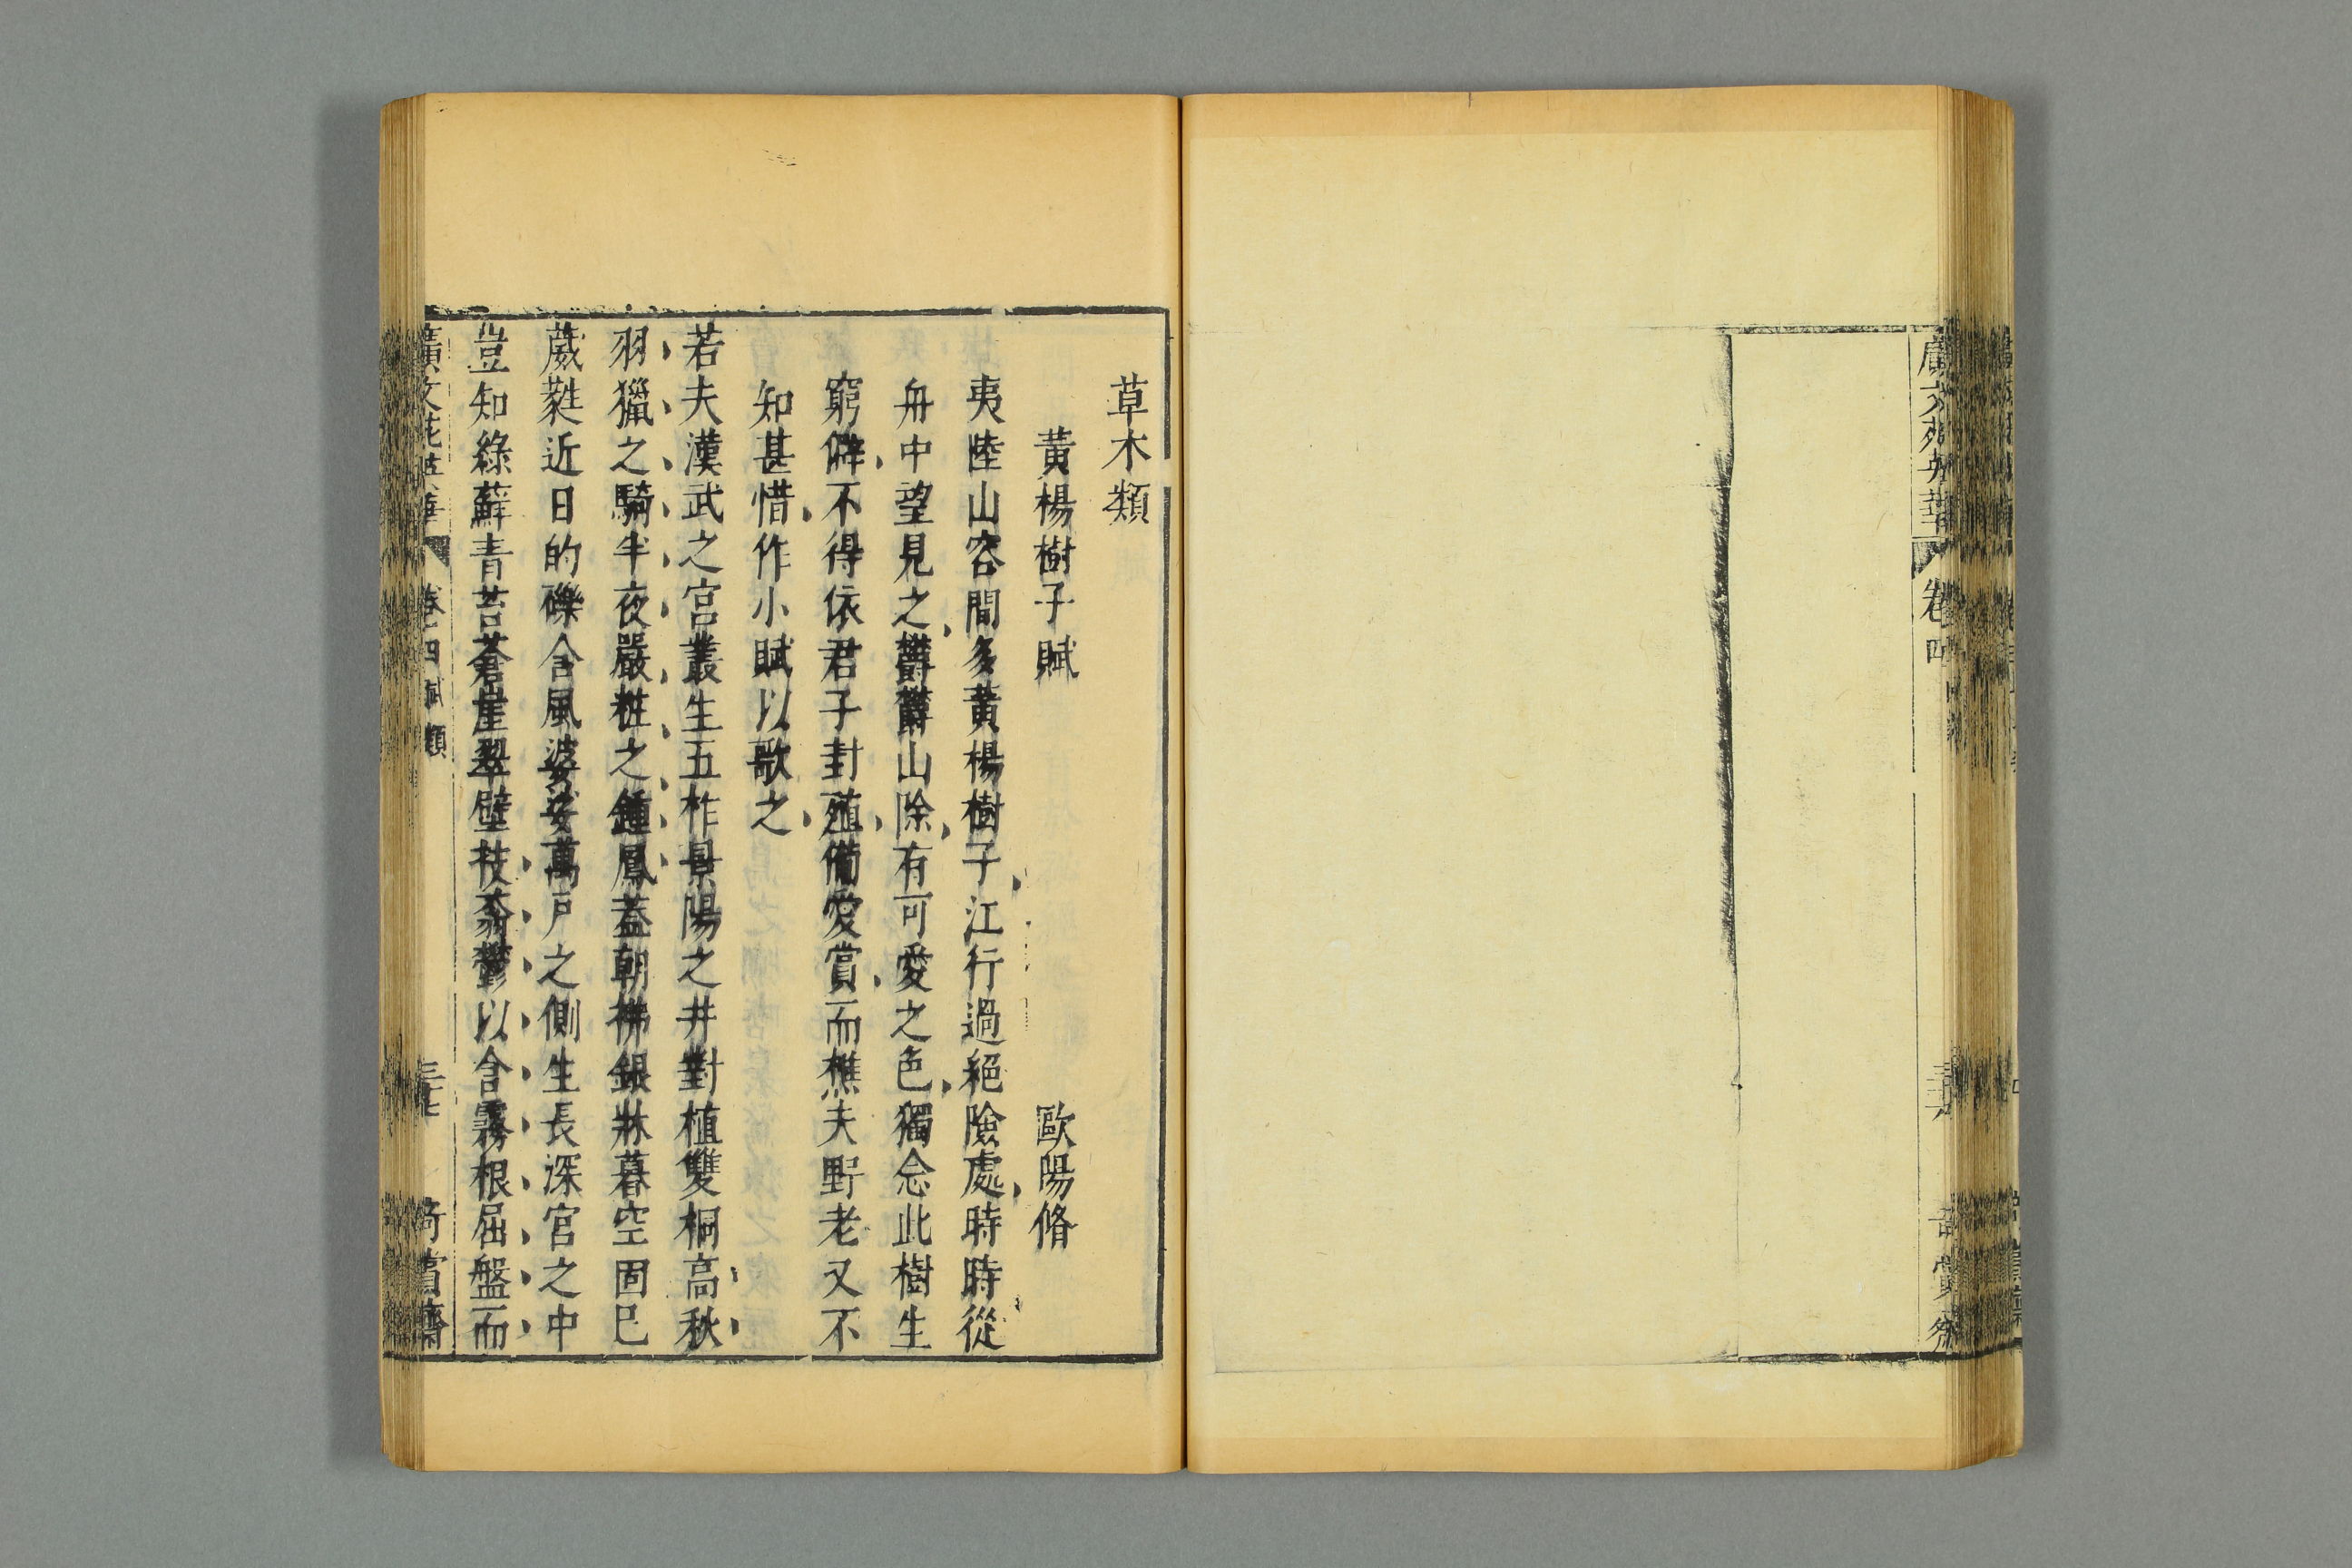 廣文苑英華
卷四
三十六
草木類
黃楊樹子賦
歐陽脩
夷陸山容間多黃楊樹子江行過絕險處時時從
舟中望見之欝欝山除有可愛之色獨念此樹生
窮僻不得依君子封殖備愛賞而樵夫野老又不
知甚惜作小賦以歌之
若夫漢武之宮叢生五柞景陽之井對植雙桐高秋
羽獵之騎半夜嚴粧之鍾鳳蓋朝拂銀牀暮空固已
葳蕤近日的礫含風婆娑萬戶之側生長深宮之中
豈知綠蘚青苔蒼崖翠壁枝蓊鬱以含霧根屈盤而
廣文苑英華
卷四
賦類
三十七
奇賞齋